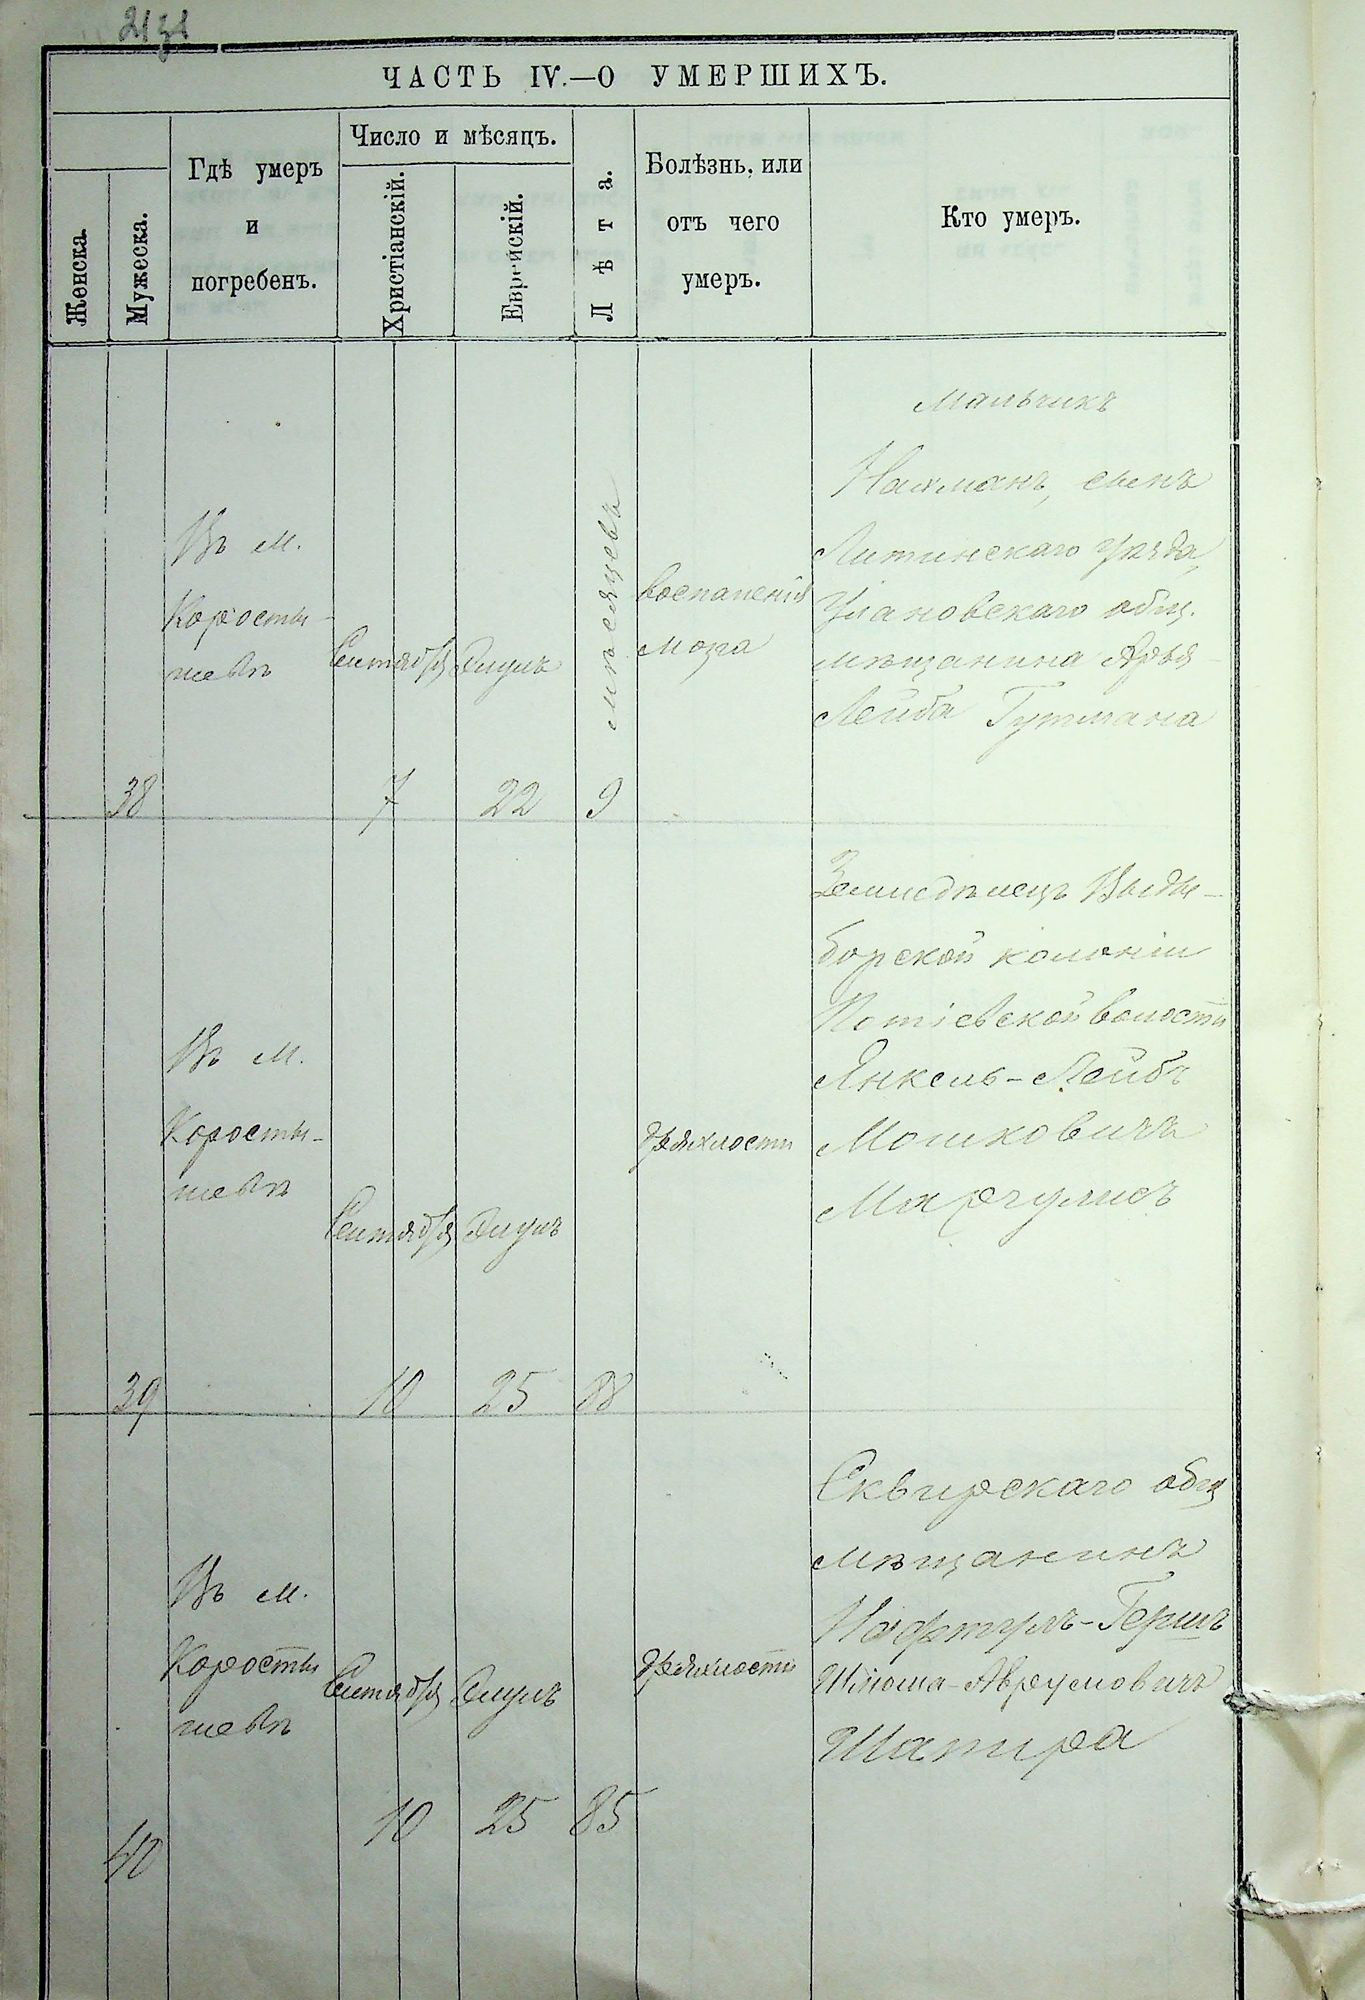 ЧАСТЬ IV.—О УМЕРШИХЪ.
Женска.
Мужеска.
Гдѣ умеръ
и
погребенъ.
Число и мѣсяцъ.
Христіанскій.
Еврейскій.
Лѣта.
Болѣзнь, или
отъ чего
умеръ.
Кто умеръ.
38
Въ м.
Коросты-
шевѣ
Сентября
7
Элулъ
22
мѣсяцевъ
9
воспаленія
мозга
Мальчикъ
Нахманъ, сынъ
Литинскаго уѣзда,
Улановскаго общ.
мѣщанина Арья-
Лейба Гутмана
39
Въ м.
Коросты-
шевѣ
Сентября
10
Элулъ
25
88
дряхлости
Земледѣлецъ Выды-
борской колоніи
Потіевской волости
Янкель-Лейбъ
Мошковичъ
Маргулисъ
40
Въ м.
Коросты
шевѣ
Сентября
10
Элулъ
25
85
дряхлости
Сквирскаго общ
мѣщанинъ
Нафтулъ-Гершъ
Шлюма-Аврумовичъ
Шапира